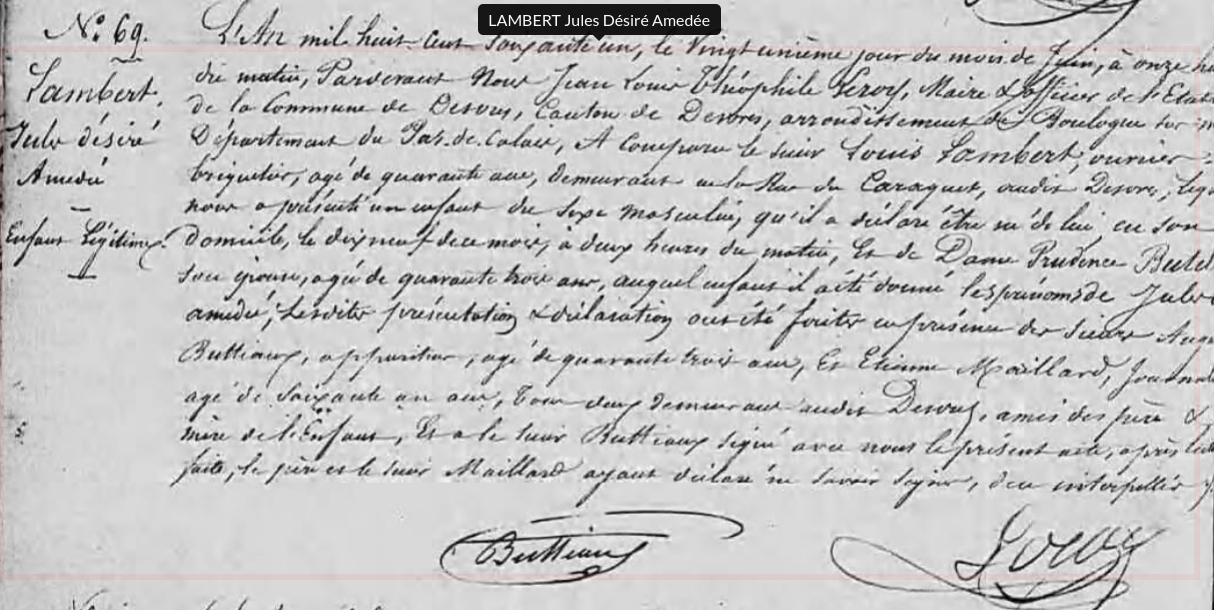 LAMBERT Jules Désiré Amedée
N.° 69.
Lambert,
Jules désiré
Amedée
Enfant Légitime.
L'An mil huit Cent Soixante un, le Vingt unième jour du mois de Juin, à onze
du matin, Pardevant Nous Jean Louis Théophile Leroy, Maire & officier de l'Etat
de la Commune de Desvres, Canton de Desvres, arrondissement de Boulogne sur
Département du Pas-de-Calais, A Comparu le sieur Louis Lambert, ouvrier
briquetier, agé de quarante ans, demeurant en la Rue du Caraquet, audit Desvres,
nous a présenté un enfant du Sexe Masculin, qu'il a déclaré être né de lui en son
domicile, le dix neuf de ce mois, à deux heures du matin, Et de Dame Prudence
son épouse, agée de quarante trois ans, auquel enfant il a été donné les prénoms de Jules
amedée; Lesdites présentation & déclaration ont été faites en présence des Sieurs
Buttiaux, appariteur, agé de quarante trois ans, Et Etienne Maillard,
agé de Soixante un ans, tous deux demeurant audit Desvres, amis des père &
mère de l'Enfant, Et a le Sieur Buttiaux signé avec nous le présent acte, après
faite, le père et le sieur Maillard ayant déclaré ne savoir signer, de ce interpellés
Buttiaux
Leroy